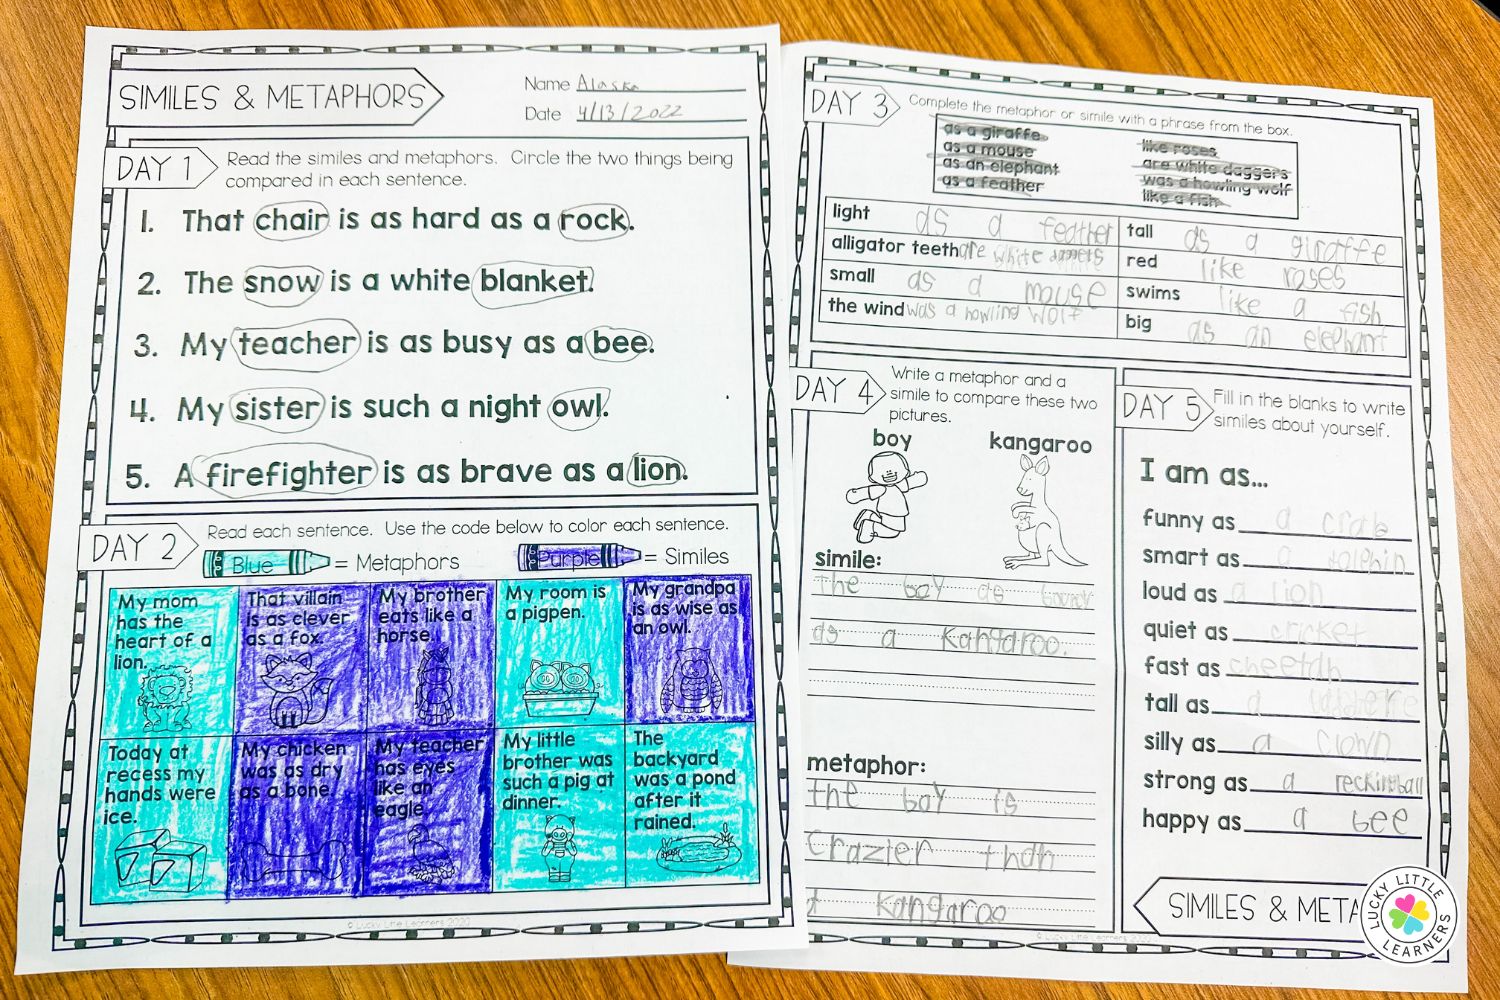 SIMILES & METAPHORS
Name Alaska
Date 4/13/2022
DAY 1
Read the similes and metaphors. Circle the two things being
compared in each sentence.
1. That chair is as hard as a rock.
2. The snow is a white blanket.
3. My teacher is as busy as a bee.
4. My sister is such a night owl.
5. A firefighter is as brave as a lion.
DAY 2
Read each sentence. Use the code below to color each sentence.
Blue = Metaphors
Purple = Similes
My mom
has the
heart of a
lion.
That villain
is as clever
as a fox.
My brother
eats like a
horse.
My room is
a pigpen.
My grandpa
is as wise as
an owl.
Today at
recess my
hands were
ice.
My chicken
was as dry
as a bone.
My teacher
has eyes
like an
eagle.
My little
brother was
such a pig at
dinner.
The
backyard
was a pond
after it
rained.
© Lucky Little Learners 2020
DAY 3
Complete the metaphor or simile with a phrase from the box.
as a giraffe
as a mouse
as an elephant
as a feather
like roses
are white daggers
was a howling wolf
like a fish
light as a feather
alligator teeth are white daggers
small as a mouse
the wind was a howling wolf
tall as a giraffe
red like roses
swims like a fish
big as an elephant
DAY 4
Write a metaphor and a
simile to compare these two
pictures.
boy
kangaroo
simile:
the boy as
as a kangaroo.
metaphor:
the boy is
crazier than
a kangaroo
© Lucky Little Learners 2020
DAY 5
Fill in the blanks to write
similes about yourself.
I am as...
funny as a crab
smart as a dolphin
loud as a lion
quiet as cricket
fast as cheetah
tall as a
silly as a clown
strong as a reckingball
happy as a bee
SIMILES & META
LUCKY LITTLE
LEARNERS